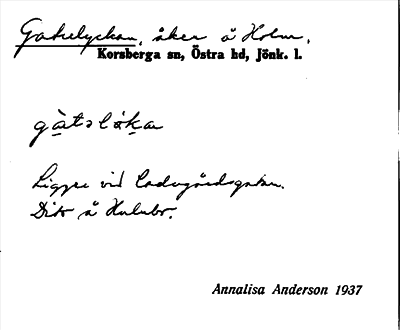 Gatulyckan, åker å Holm,
Korsberga sn, Östra hd, Jönk. l.
gàtslókar
Ligger vid Ladugårdsgatan.
Dito å Hulubo.
Annalisa Anderson 1937